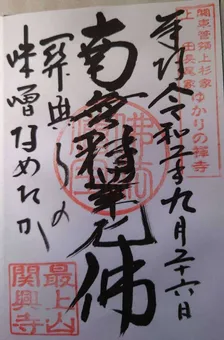 関東管領上杉家
上田長尾家
ゆかりの禅寺
奉拝 令和五年九月二十六日
南無釈迦牟尼佛
関興寺の
味噌なめたか
最上山
関興寺